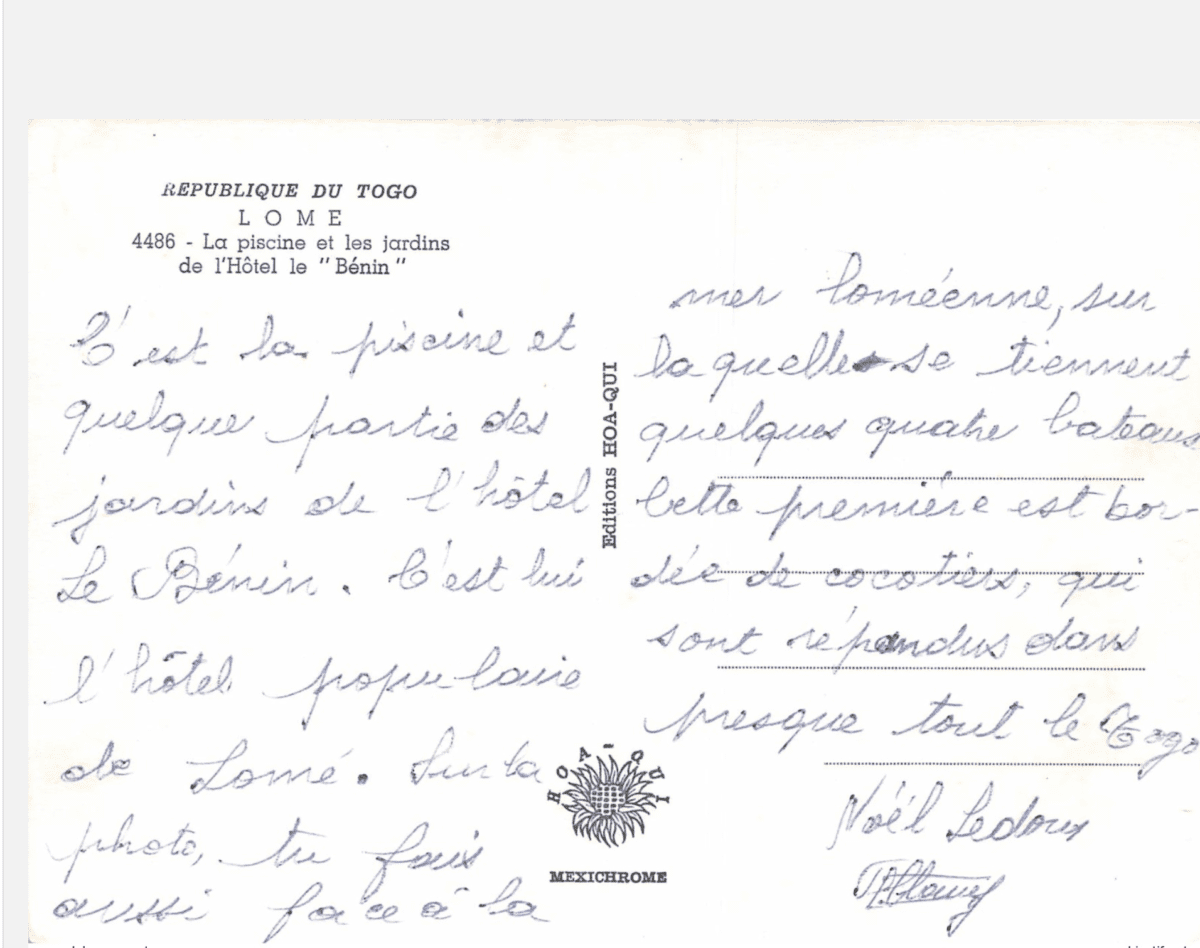 REPUBLIQUE DU TOGO
LOME
4486 - La piscine et les jardins
de l'Hôtel le "Bénin"
C'est la piscine et
quelque partie des
jardins de l'hôtel
Le Bénin. C'est lui
l'hôtel populaire
de Lomé. Sur la
photo, tu fais
aussi face à la
Editions HOA-QUI
HOA-QUI
MEXICHROME
mer loméenne, sur
laquelle se tiennent
quelques quatre bateaux
Cette première est bor-
dée de cocotiers, qui
sont répandus dans
presque tout le Togo
Noël Ledoux